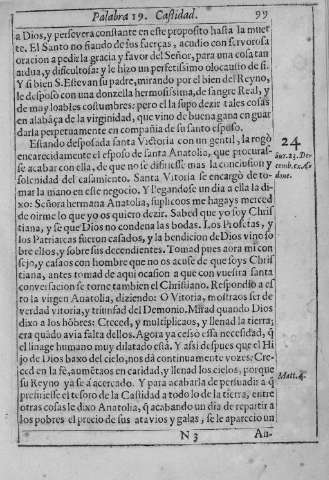 Palabra 19. Castidad. 99
a Dios, y persevera constante en este proposito hasta la muer
te. El Santo no fiando de sus fuerças, acudio con fervorosa
oracion a pedir la gracia y favor del Señor, para una cosa tan
ardua, y dificultosa: y le hizo un perfetissimo olocausto de si.
Y si bien S. Estevan su padre, mirando por el bien del Reyno,
le desposò con una donzella hermosissima, de sangre Real, y
de muy loables costumbres: pero el la supo dezir tales cosas
en alabãça de la virginidad, que vino de buena gana en guar
darla perpetuamente en compañia de su santo esposo.
Estando desposada santa Victoria con un gentil, la rogò
encarecidamente el esposo de santa Anatolia, que procuras-
se acabar con ella, de que no se difiriesse mas la conclusion y
solenidad del casamiento. Santa Vitoria se encargò de to-
mar la mano en este negocio. Y llegandose un dia a ella la di-
xo: Señora hermana Anatolia, suplicoos me hagays merced
de oirme lo que yo os quiero dezir. Sabed que yo soy Chris
tiana, y se que Dios no condena las bodas. Los Profetas, y
los Patriarcas fueron casados, y la bendicion de Dios vino so
bre ellos, y sobre sus decendientes. Tomad pues aora mi con
sejo, y casaos con hombre que no os acuse de que soys Chris
tiana, antes tomad de aqui ocasion a que con vuestra santa
conversacion se torne tambien el Christiano. Respondio a es
to la virgen Anatolia, diziendo: O Vitoria, mostraos ser de
verdad vitoria, y triunfad del Demonio. Mirad quando Dios
dixo a los hõbres: Creced, y multiplicaos, y llenad la tierra;
era quãdo avia falta dellos. Agora ya cesso essa necesidad, q̃
el linage humano muy dilatado està. Y assi despues que el Hi
jo de Dios baxo del cielo, nos dà continuamente vozes: Cre-
ced en la fè, aumẽtaos en caridad, y llenad los cielos, porque
su Reyno ya se à acercado. Y para acabarla de persuadir a q̃
prefiriesse el tesoro de la Castidad a todo lo de la tierra, entre
otras cosas le dixo Anatolia, q̃ acabando un dia de repartir a
los pobres el precio de sus atavios y galas, se le aparecio un
N 3 An-
24
Sur. 23. De-
cemb. ex. Ado
Matt. 4.